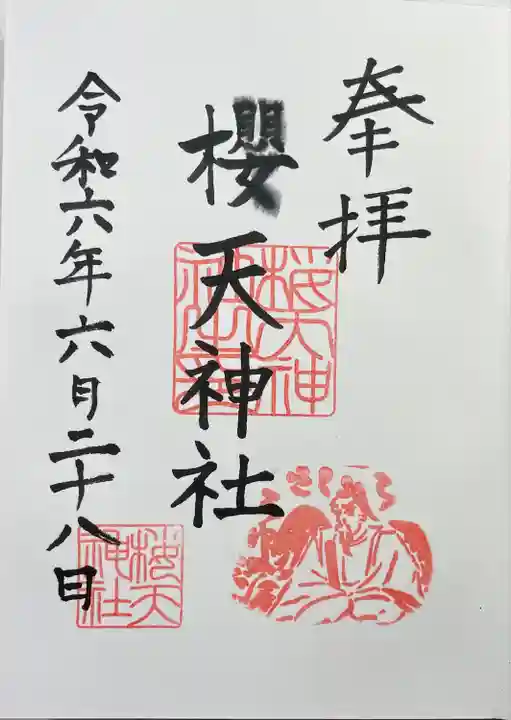 奉拝
櫻天神社
令和六年六月二十八日
桜天神
社之印
桜天
神社